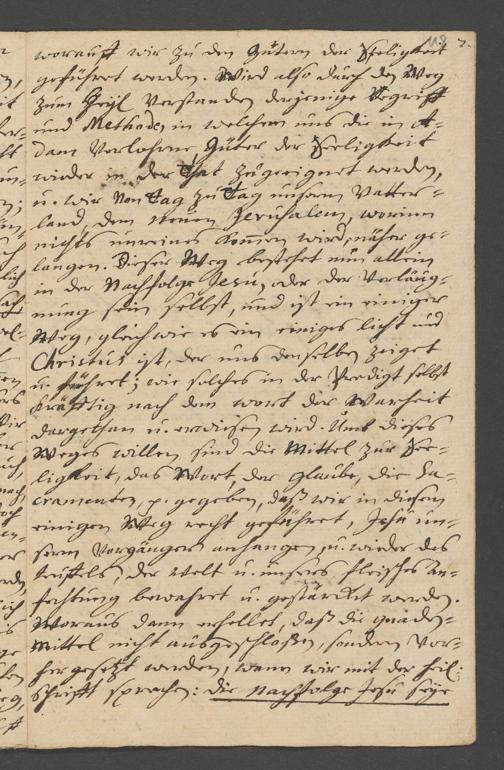 118 7.
worauff wir zu den Gütern der Seeligkeit
geführet werden. Wird also durch den Weg
zum Heyl verstanden derjenige Begriff
und Methode, in welchem uns die in A-
dam verlohrne Güter der Seeligkeit
wieder in der That zugeeignet werden,
u. wir von Tag zu Tag unserm Vatter-
land, dem neuen Jerusalem, worinn
nichts unreines kommen wird, näher ge-
langen. Dieser Weg bestehet nun allein
in der Nachfolge Jesu, oder der Verläug-
nung sein selbst, und ist ein einiger
Weg, gleich wie es ein einiges licht und
Christus ist, der uns denselben zeiget
u. führet; wie solches in der Predigt selbst
kräfftig nach dem wort der Warheit
dargethan u. erwiesen wird. Umb dieses
Weges willen sind die Mittel zur See-
ligkeit, das Wort, der glaube, die Sa-
cramenten, p. gegeben, daß wir in diesen
einigen Weg recht geführet, Jesu un-
serm Vorgänger anhangen, u. wieder des
teuffels, der welt u. unsers fleisches An-
fechtung bewahret u. gestärcket werden.
Woraus dann erhellet, daß die gnaden-
mittel nicht ausgeschloßen, sondern vor-
her gesetzt werden, wann wir mit der heil.
Schrifft sprechen: die Nachfolge Jesu seye